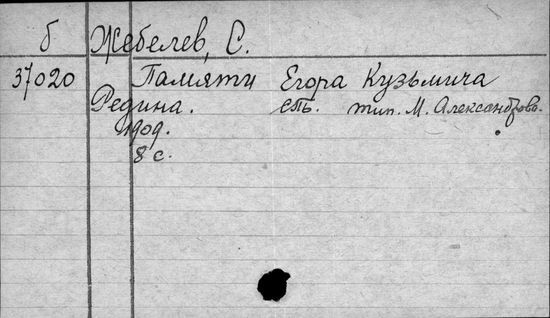 б Жебелев, С.
37020 Памяти Егора Кузьмича
Редина. спб. тип. М. Александрова.
1909.
8 с.